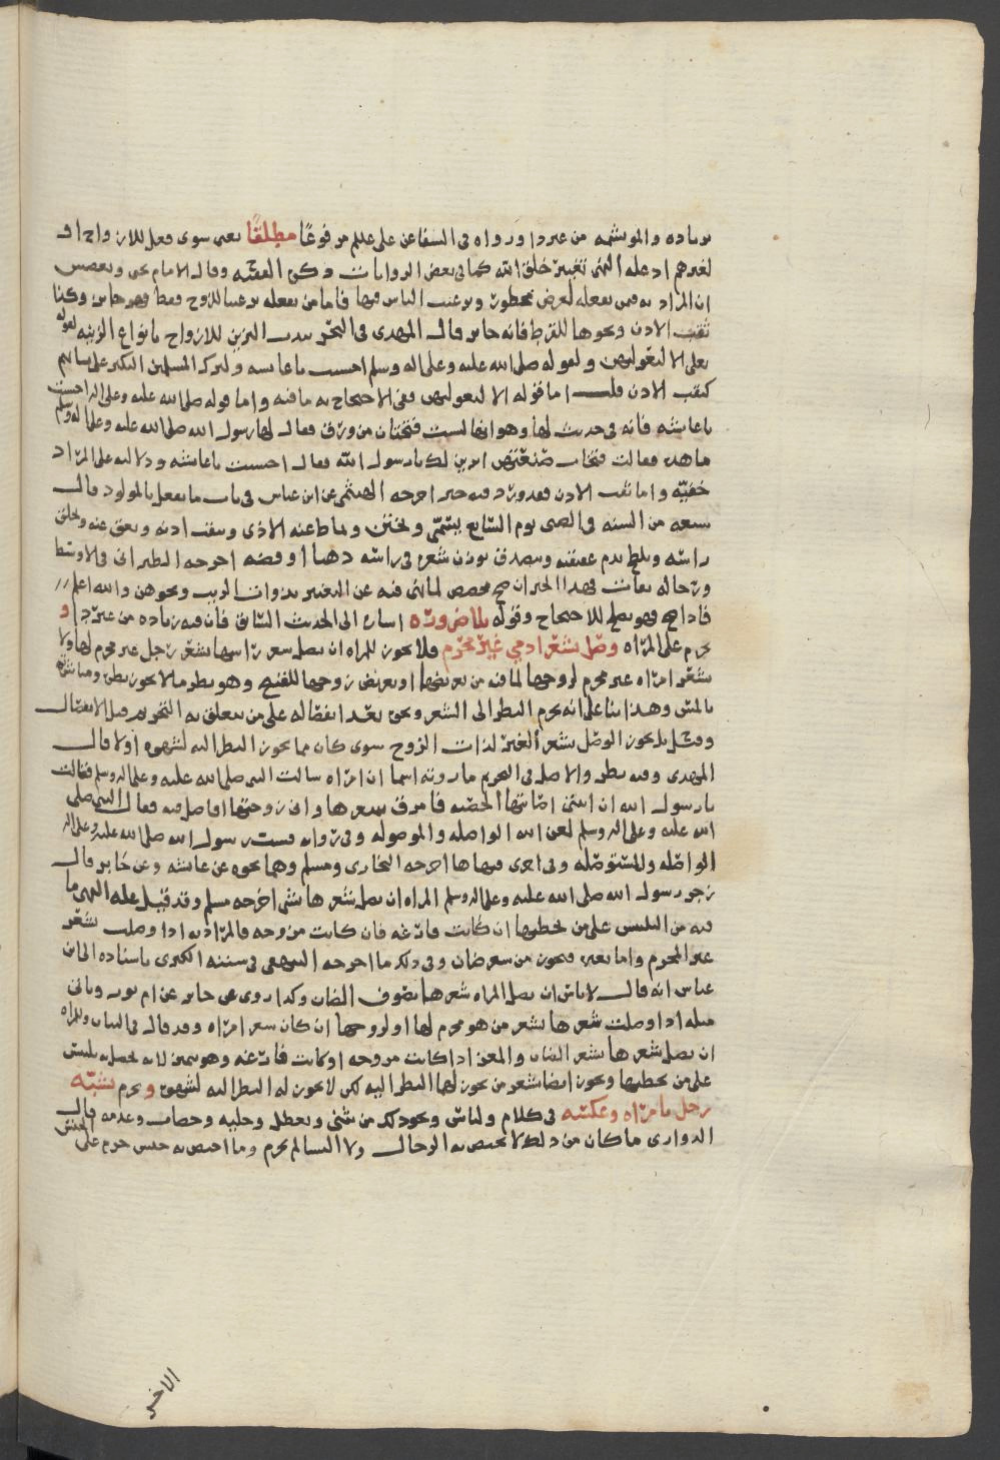 بزياده والموتشمه من غير دا ورواه في الشفا عن علي عليلم مرفوعًا مطلقًا يعني سوى فعل للازواج او
لغيرهم اذ عله النهي تغيير خلق الله كما في بعض الروايات ذكره الفقيه وقال الامام يحيى
ان المراد به فيمن يفعله لغرض محظور وترغيب الناس فيها فاما من يفعله ترغيبا للزوج فقط فهو جايز وكذا
ثقب الاذن ونحوها للقرط فانه جايز قال المهدي في البحر يندب التزين للازواج بانواع الزينه لقوله
تعلى الا لبعولتهن ولقوله صلى الله عليه وعلى اله وسلم احسنت يا عايشه ولترك المسلمين النكير على نسائهم
كثقب الاذن قلت اما قوله الا لبعولتهن ففي الاحتجاج به ما فيه واما قوله صلى الله عليه وعلى اله احسنت
يا عايشه فانه في حديث لها وهو انها لبست فتختان من ورق فقال لها رسول الله صلى الله عليه وعلى اله وسلم
ما هذه فقالت فتخات صنعتهن اتزين لك يا رسول الله فقال احسنت يا عايشه ودلالته على المراد
خفيّه واما ثقب الاذن فقد ورد فيه خبر اخرجه الهيثمي عن ابن عباس في باب ما يفعل بالمولود قال
سبعه من السنه في الصبي يوم السّابع يسمّى ويختن ويماط عنه الاذى ويثقب اذنه ويعق عنه ويحلق
راسه ويلطخ بدم عقيقته ويصدق بوزن شعره في راسه ذهبا او فضه اخرجه الطبراني في الاوسط
ورجاله ثقات فهذا الخبر ان صح مخصص لما نهي فيه عن التغيير بذوات الريب ونحوهن والله اعلم
فاذا صح فهو يصلح للاحتجاج وقوله بلا ضروره اشاره الى الحديث السّابق فان فيه زياده من غير دا و
يحرم على المراه وصل شعر ادمي غير محرم فلا يجوز للمراه ان تصل شعر راسها بشعر رجل غير محرم لها ولا
بشعر امراه غير محرم لزوجها لما فيه من تعريضها او تعريض زوجها للقبيح وهو نظر ما لا يجوز نظره ومباشرته
بالمس وهذا بنا على انه يحرم النظر الى الشعر ونحوه بعد انفصاله على من يتعلق به التحريم قبل الانفصال
وقيل بل يجوز الوصل بشعر الغير لذات الزوج سوى كان مما يجوز النظر اليه لشهوه او لا قال
المهدي وفيه نظر والاصل في التحريم ما روته اسما ان امراه سالت النبي صلى الله عليه وعلى اله وسلم فقالت
يا رسول الله ان ابنتي اصابتها الحصبه فامرق شعرها واني زوجتها افاصل فيه فقال النبي صلى
الله عليه وعلى اله وسلم لعن الله الواصله والموصوله وفي روايه فسب رسول الله صلى الله عليه وعلى اله
الواصله والمستوصله وفي اخرى فنهاها اخرجه البخاري ومسلم وهما نحوه عن عايشه وعن جابر قال
زجر رسول الله صلى الله عليه وعلى اله وسلم المراه ان تصل شعرها بشي اخرجه مسلم وقد قيل عله النهي ما
فيه من التلبيس على من يخطبها ان كانت فارغه فان كانت مزوجه فالمراد به اذا وصلت بشعر
غير المحرم واما بغيره فيجوز من شعر ضان وفي ذلك ما اخرجه البيهقي في سننه الكبرى باسناده الى ابن
عباس انه قال لا باس ان تصل المراه شعرها بصوف الضان وكذا روي عن جابر عن ام ثور وياتي
مثله اذا وصلت شعرها بشعر من هو محرم لها او لزوجها ان كان شعر امراه وقد قال في البيان وللمراه
ان تصل شعرها بشعر الضان والمعز اذا كانت مزوجه او كانت فارغه وهو يتميز لانه يحصل به تلبيس
على من يخطبها ويجوز ايضا بشعر من يجوز لها النظر اليه لكن لا يجوز له النظر اليه لشهوه ويحرم تشبّه
رجل بامراه وعكسه في كلام ولباس ونحو ذلك من مشي وتعطل وحليه وخضاب وعدمه قال
الدواري ما كان من ذلك لا يختص به الرجال ولا النسا لم يحرم وما اختص به جنس حرم على الجنس
الاخر